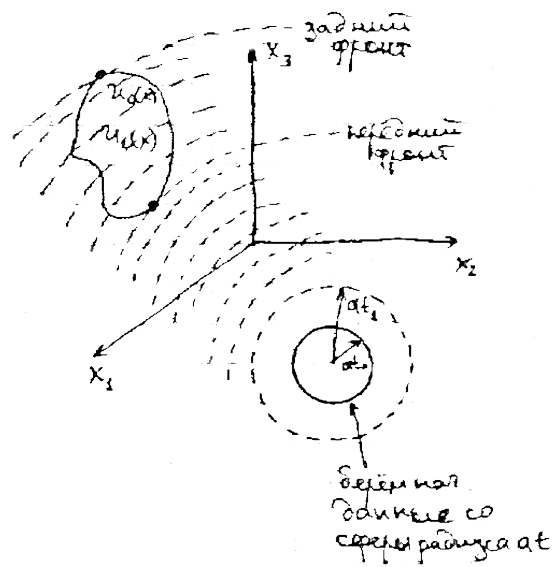 задний
фронт
x₃
u₀(x)
u₁(x)
передний
фронт
x₂
at₁
at₀
x₁
берём нач
данные со
сферы радиуса at